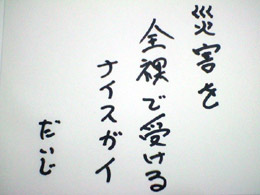 災害を
全裸で受ける
ナイスガイ
だいじ